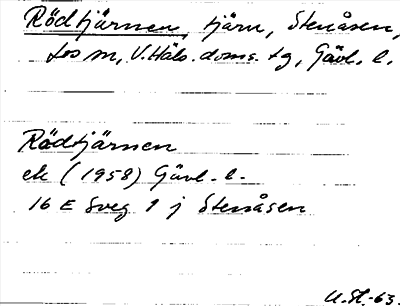 Rödtjärnen, tjärn, Stenåsen,
Los sn, V. Häls. doms. tg, Gävl. l.
Rödtjärnen
ek (1958) Gävl. l.
16 E Sveg 9 j Stenåsen
U. St. -63.